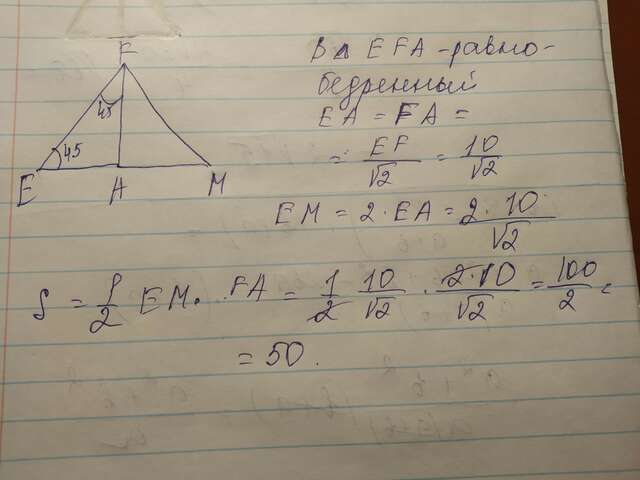 F
45
45
E A M
В △ EFA - равно-
бедренный
EA = FA =
= EF/√2 = 10/√2
EM = 2 · EA = 2 · 10/√2
S = 1/2 EM · FA = 1/2 10/√2 · 2·10/√2 = 100/2 =
= 50.